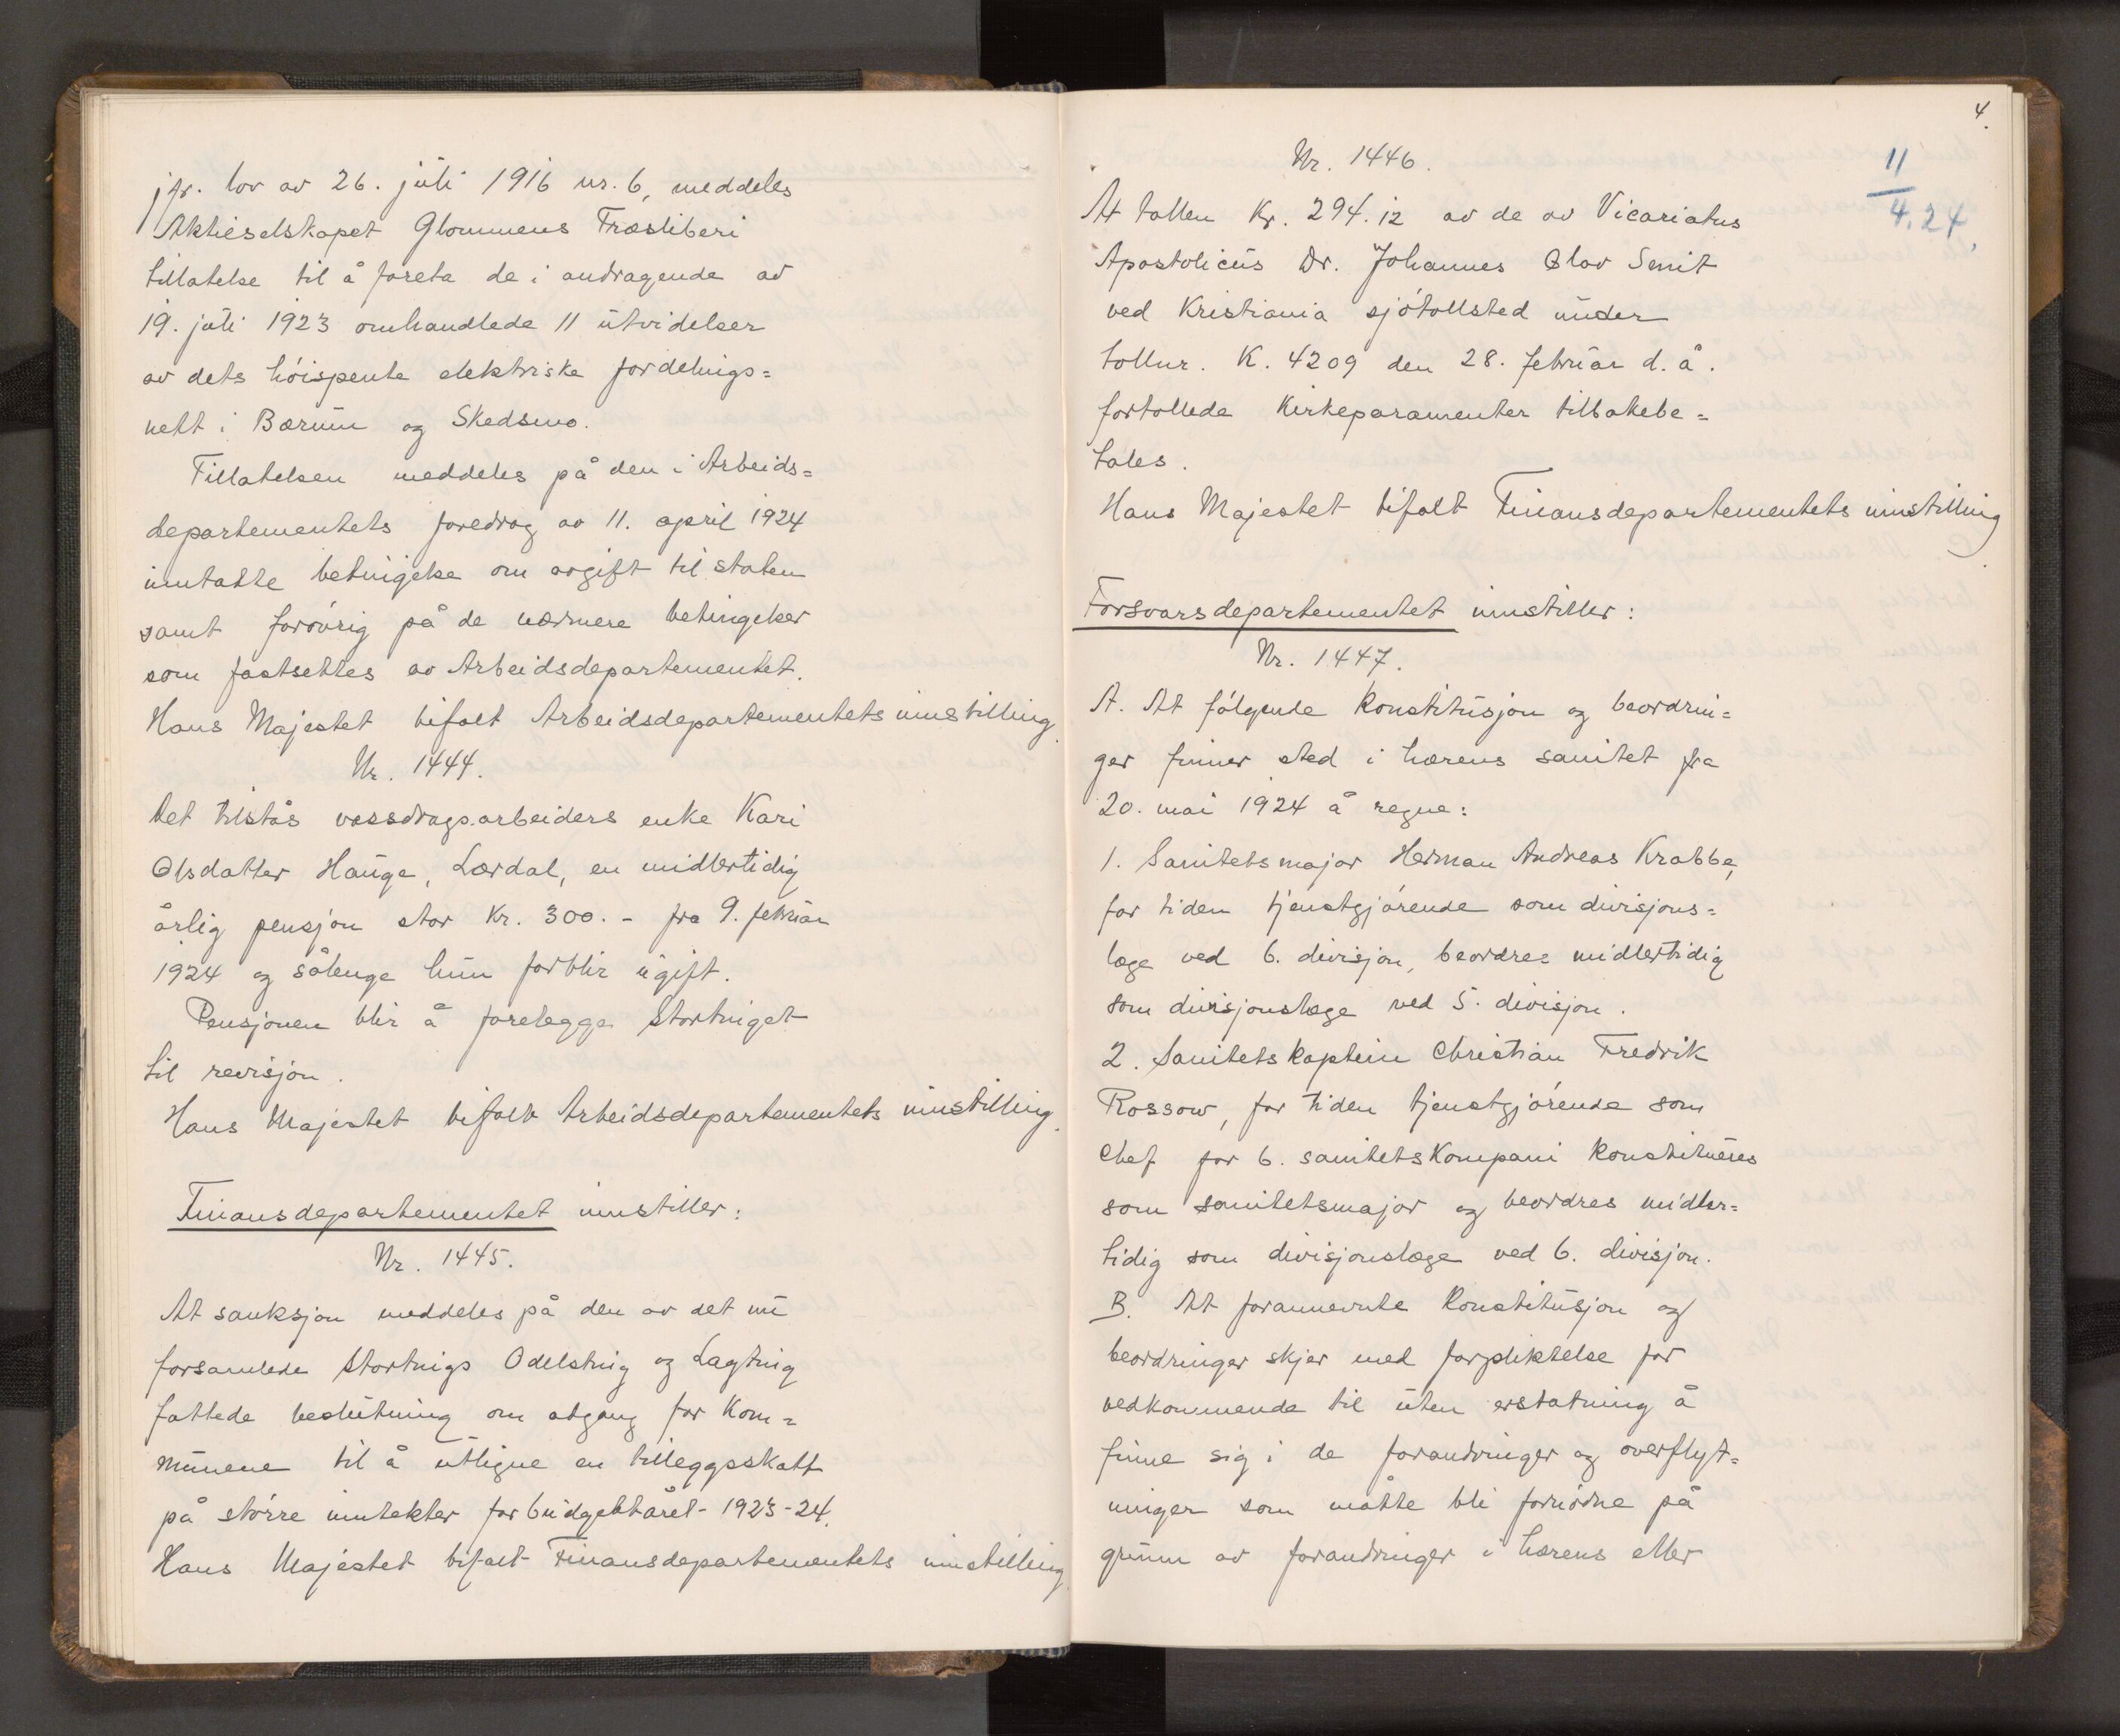 jfr. lov av 26. juli 1916 nr. 6, meddeles
Aktieselskapet Glommens Træsliberi
tillatelse til å foreta de i andragende av
19. juli 1923 omhandlede 11 utvidelser
av dets höispente elektriske fordelings=
nett i Bærum og Skedsmo.
Tillatelsen meddeles på den i Arbeids=
departementets foredrag av 11. april 1924
inntatte betingelse om avgift til staten
samt forövrig på de nærmere betingelser
som fastsettes av Arbeidsdepartementet.
Hans Majestet bifalt Arbeidsdepartementets innstilling.
Nr. 1444.
Det tilstås vassdragsarbeiders enke Kari
Olsdatter Hauge, Lærdal, en midlertidig
årlig pensjon stor Kr. 300.- fra 9. februar
1924 og sålenge hun forblir ugift.
Pensjonen blir å forelegge Stortinget
til revisjon.
Hans Majestet bifalt Arbeidsdepartementets innstilling.
Finansdepartementet innstiller:
Nr. 1445.
At sanksjon meddeles på den av det nu
forsamlede Stortings Odelsting og Lagting
fattede beslutning om adgang for Kom=
munene til å utligne en tilleggsskatt
på större inntekter for budgettåret 1923-24.
Hans Majestet bifalt Finansdepartementets innstilling
4.
11
4.24.
Nr. 1446.
At tollen Kr. 294.12 av de av Vicariatus
Apostolicus Dr. Johannes Olav Smit
ved Kristiania sjötollsted under
tollnr. K. 4209 den 28. februar d. å.
fortollede Kirkeparamenter tilbakebe=
tales.
Hans Majestet bifalt Finansdepartementets innstilling.
Forsvarsdepartementet innstiller:
Nr. 1447.
A. At fölgende Konstitusjon og beordrin=
ger finner sted i hærens sanitet fra
20. mai 1924 å regne:
1. Sanitetsmajor Herman Andreas Krabbe,
for tiden tjenstgjörende som divisjons=
læge ved 6. divisjon, beordres midlertidig
som divisjonslæge ved 5. divisjon.
2. Sanitetskaptein Christian Fredrik
Rossow, for tiden tjenstgjörende som
Chef for 6. sanitetskompani Konstitueres
som sanitetsmajor og beordres midler=
tidig som divisjonslæge ved 6. divisjon.
B. At forannevnte Konstitusjon og
beordringer skjer med forpliktelse for
vedkommende til uten erstatning å
finne sig i de forandringer og overflyt=
ninger som måtte bli fornödne på
grunn av forandringer i hærens eller